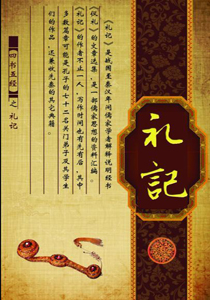 《礼记》是战国至秦汉年间儒家学者解释说明经书
《仪礼》的文章选集，是一部儒家思想的资料汇编。
《礼记》的作者不止一人，写作时间也有先有后，其中
多数篇章可能是孔子的七十二名关门弟子及其学生
们的作品，还兼收先秦的其它典籍。
【四书五经】之 礼记
礼記